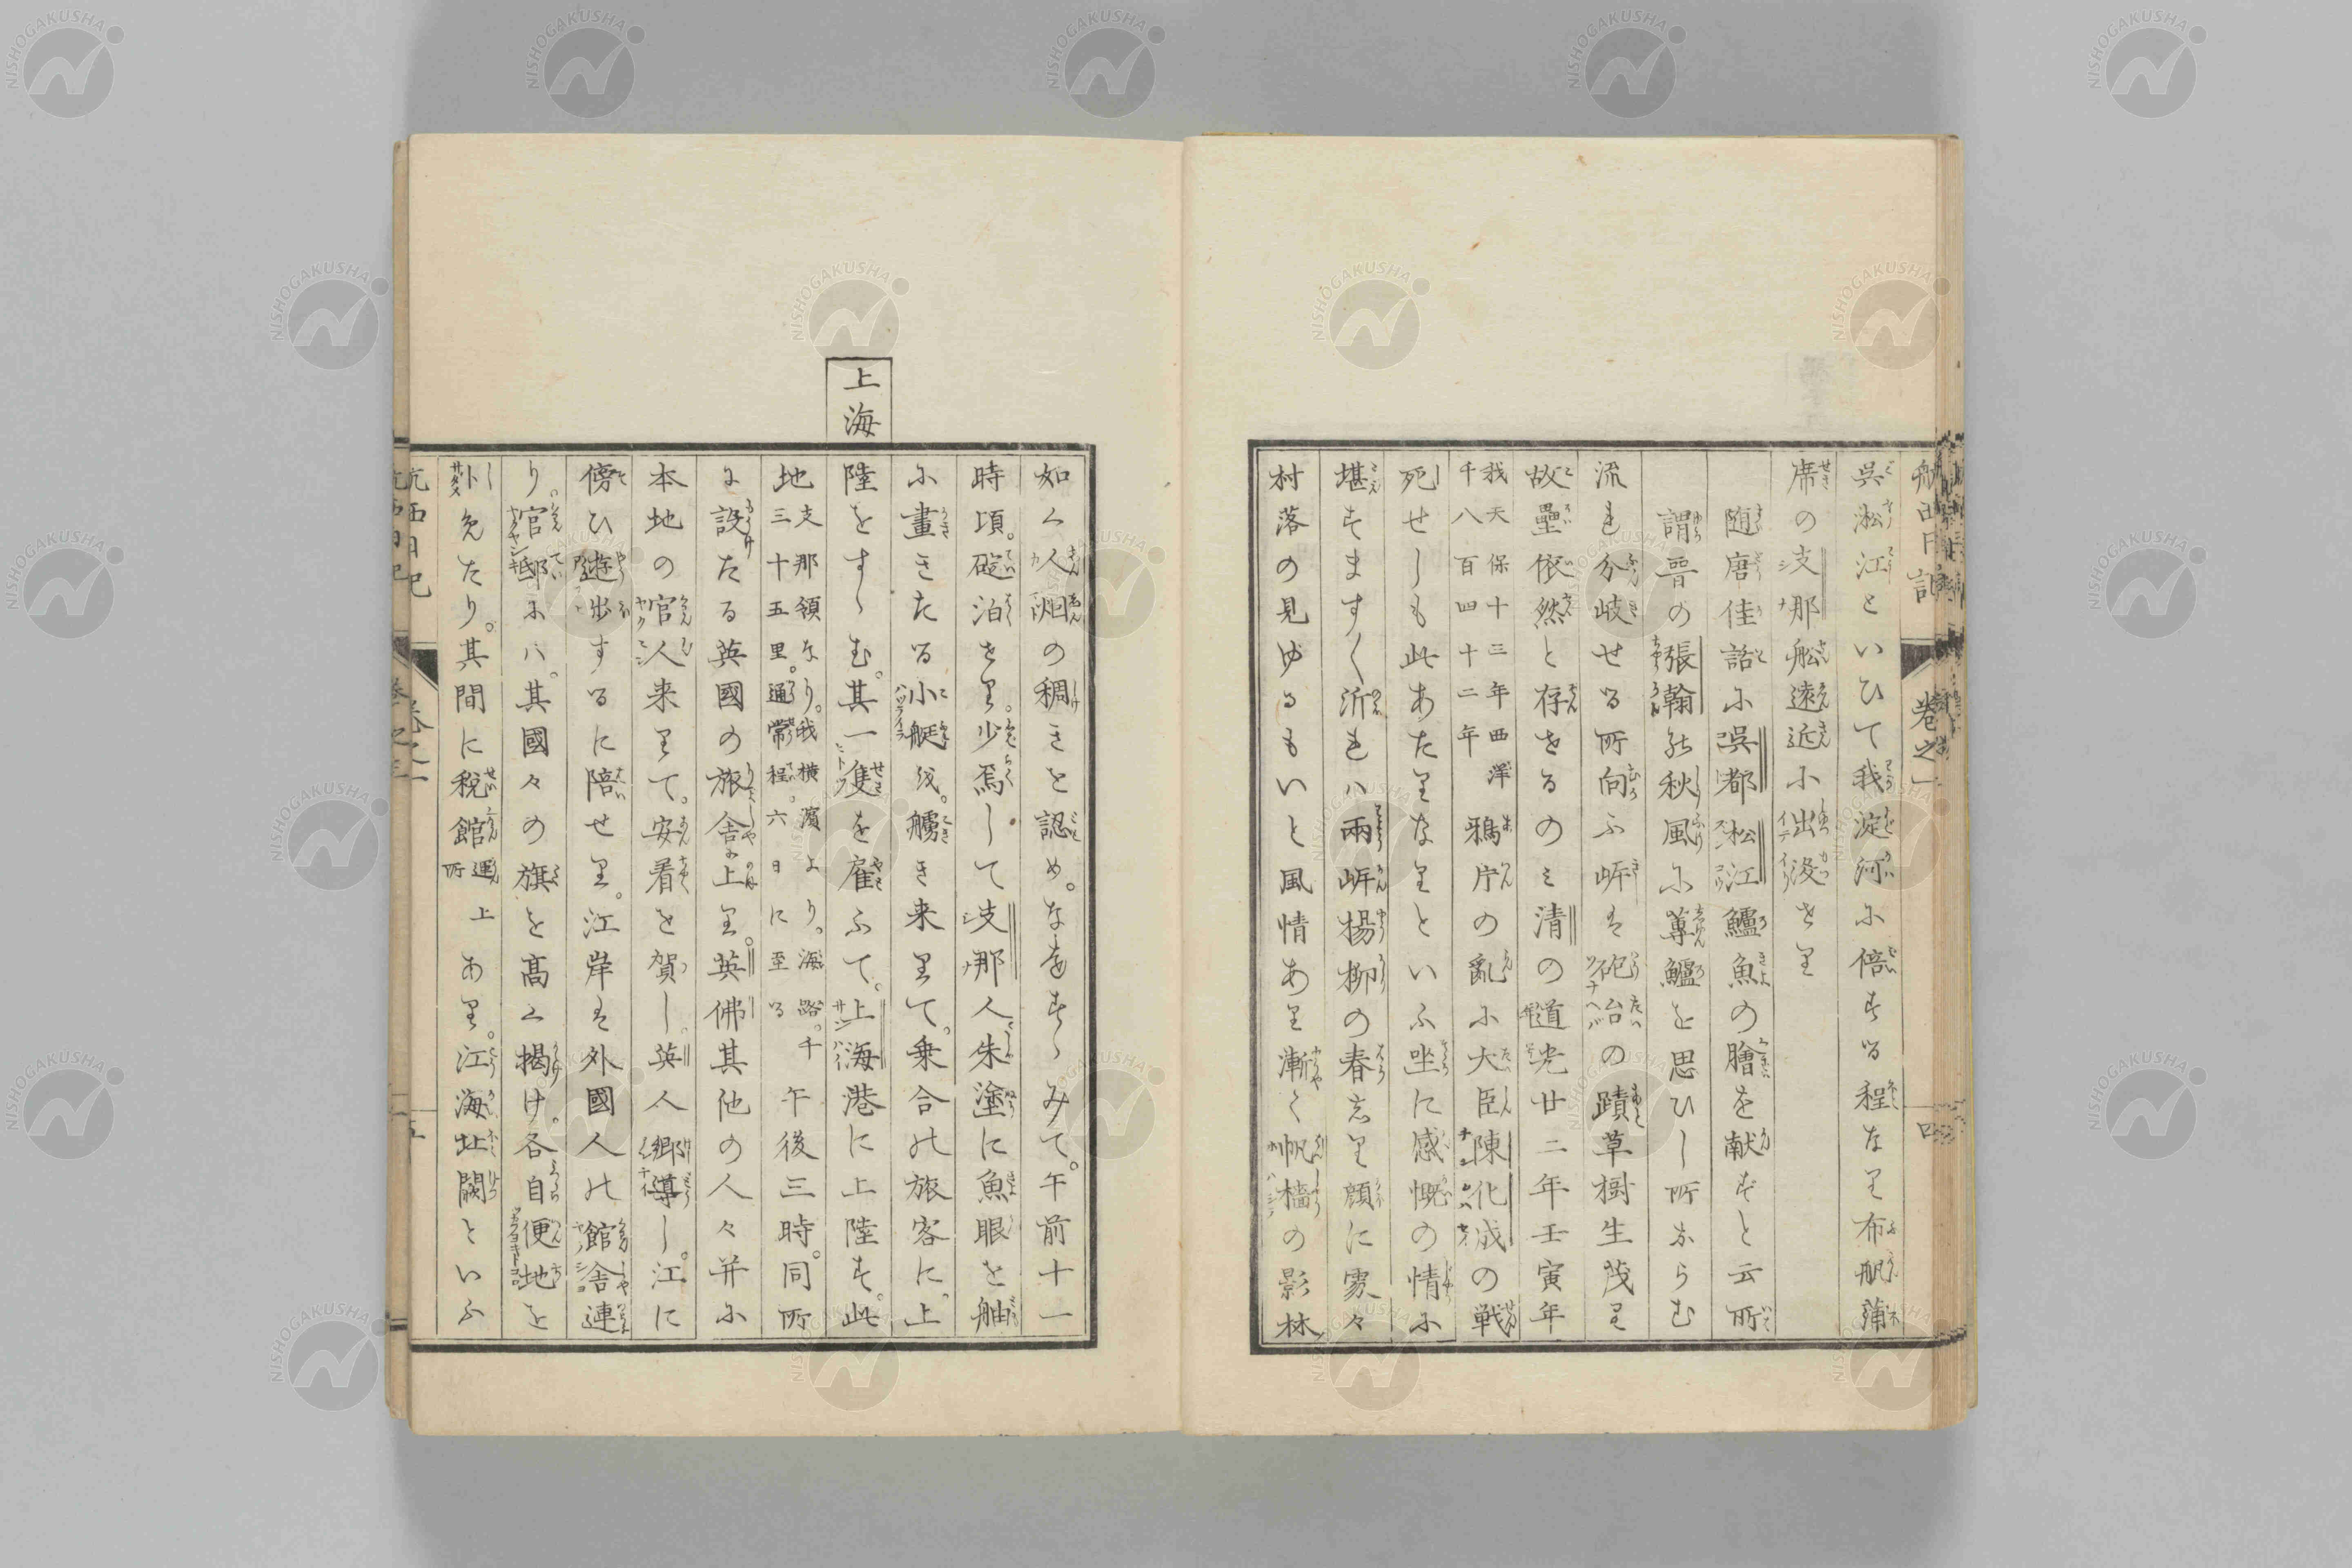 航西日記 卷之一 四
呉淞江といひて我淀河尓倍す る程なり布帆蒲
席の支那舩遠近尓出没せり
随唐佳話尓呉都松江鱸魚の膾を献すと云所
謂晋の張翰能秋風尓蓴鱸を思ひし所ならむ
流れ分岐せる所向ふ岸は砲台の蹟草樹生茂り
故壘依然と存せるのミ清の道光廿二年壬寅年
我天保十三年西洋
千八百四十二年
鴉片の亂尓大臣陳化成の戦
死せしも此あたりなりといふ坐に感慨の情尓
堪すますく泝れハ兩岸楊柳の春志り顔に霧々
村落の見ゆるもいと風情あり漸く帆檣の影林
上海
如く人烟の稠きを認め。なを すゝみて。午前十一
時頃。碇泊せり。少焉して支那人。朱塗に魚眼を舳
尓畫きたる小艇を。艣き来りて。乗合の旅客に。上
陸をすゝむ。其一隻を雇ふて。上海港に上陸す。此
地
支那領なり。我横濱より。海路。千
三十五里。通常程。六日に至る
午後三時。同所
に設たる英國の旅舎に上り。英佛其他の人々并尓
本地の官人来りて。安着を賀し。英人郷導し。江に
傍ひ遊歩するに陪せり。江岸は外國人の館舎連
り。官邸尓ハ。其國々の旗を高く掲け。各自便地を
卜免たり。其間に税館
運上
所
あり。江海北關といふ
航西日記 卷之一 五